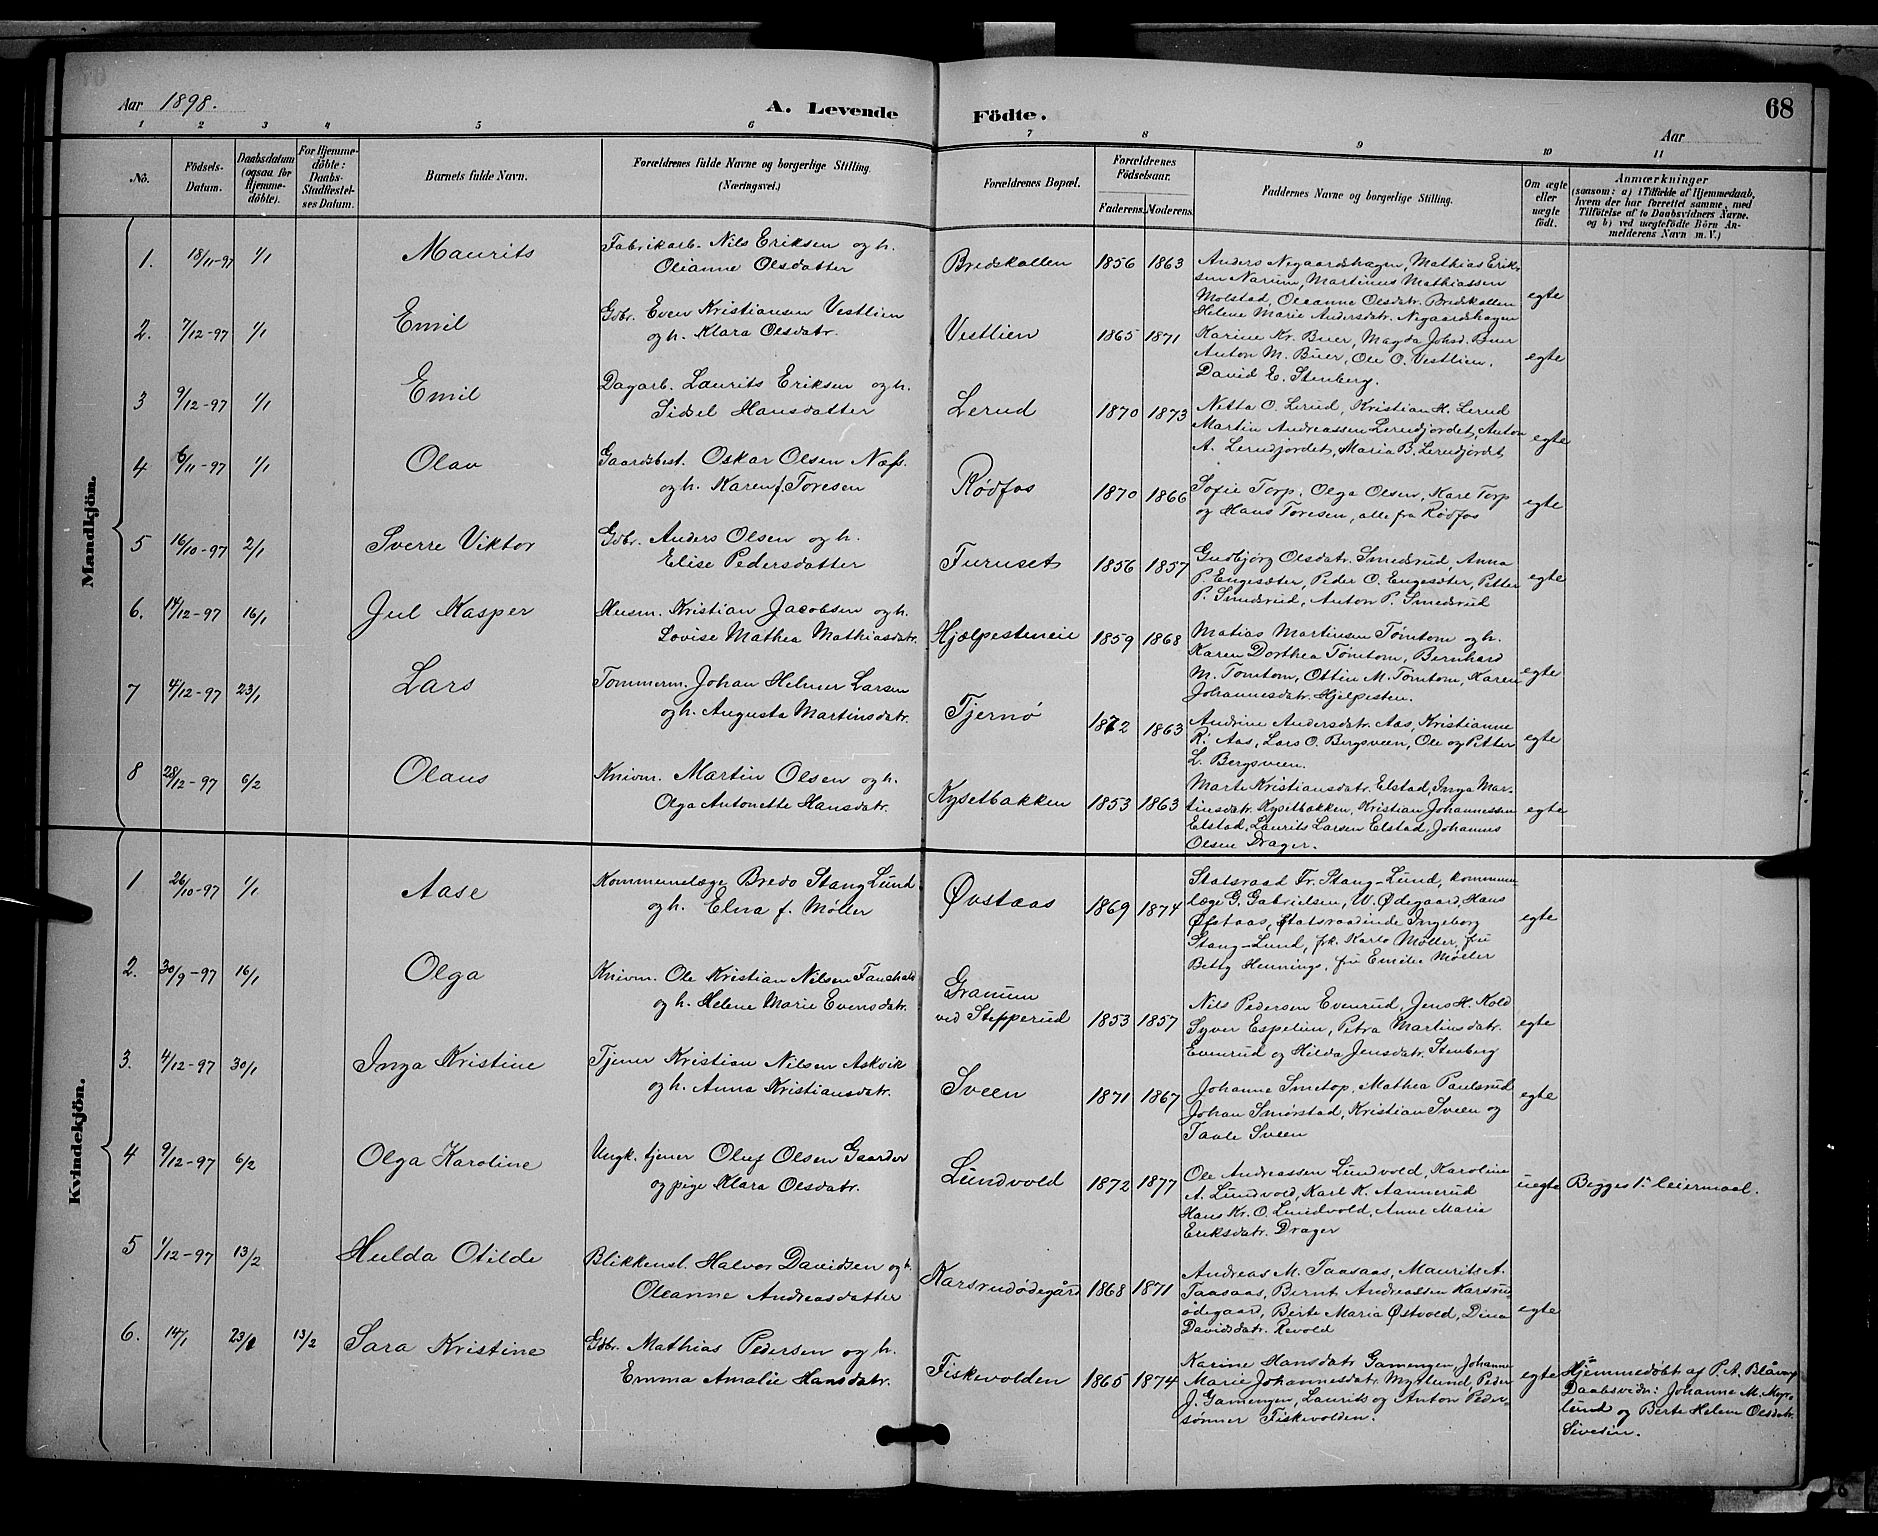 Aar 1898.
A. Levende
Födte.
68
Aar
1 2 3 4 5 6 7 8 9 10 11
No.
Födsels-
Datum.
Daabsdatum
(ogsaa for
Hjemme-
döbte).
For Hjemme-
döbte:
Daabs-
Stadfæstel-
ses Datum.
Barnets fulde Navn.
Forældrenes fulde Navne og borgerlige Stilling.
(Næringsvei.)
Forældrenes Bopæl.
Forældrenes
Födselsaar.
Faderens. Moderens.
Faddernes Navne og borgerlige Stilling.
Om ægte
eller
uægte
födt.
Anmærkninger
(saasom: a) i Tilfælde af Hjemmedaab,
hvem der har forrettet samme, med
Tilföielse af to Daabsvidners Navne.
og b) ved uægtefödte Börn An-
melderens Navn m. V.)
Mandkjön.
1. 18/11-97 1/1 Maurits
Fabrikarb. Nils Eriksen og h.
Olianne Olsdatter
Bredskallen 1856 1863
Anders Negaardshagen, Mathias Erik-
sen Narum, Martinus Mathiassen
Molstad, Oleanne Olsdatr. Bredskallen
Helene Marie Andersdatr. Negaardshagen
egte
2. 7/12-97 1/1 Emil
Gdbr. Even Kristiansen Vestlien
og h. Klara Olsdatr.
Vestlien 1865 1871
Karine Kr. Buer, Magda Johsd. Buer
Anton M. Buer, Ole O. Vestlien.
David E. Stenberg.
egte
3 9/12-97 1/1 Emil
Dagarb. Laurits Eriksen og h.
Sidsel Hansdatter
Lerud 1870 1873
Netta O. Lerud, Kristian H. Lerud
Martin Andreassen Lerudjordet, Anton
A. Lerudjordet, Maria B. Lerudjordet
egte
4 6/11-97 1/1 Olav
Gaardsbest. Oskar Olsen Næss.
og h. Karen f. Toresen
Rødfos 1870 1866
Sofie Torp, Olga Olsen, Karl Torp
og Hans Toresen, alle fra Rødfos
egte
5 16/10-97 2/1 Sverre Viktor
Gdbr. Anders Olsen og h.
Elise Pedersdatter
Furuset 1856 1857
Gudbjørg Olsdatr. Smedsrud, Anna
P. Engesæter, Peder O. Engesæter, Petter
P. Smedsrud, Anton P. Smedsrud
egte
6. 14/12-97 16/1 Jul Kasper
Husm. Kristian Jacobsen og h.
Lovise Mathea Mathiasdatr.
Hjælpesteneie 1859 1868
Matias Martinsen Tømtom og h.
Karen Dorthea Tømtom, Bernhard
M. Tømtom, Ottin M. Tømtom, Karen
Johannesdatr. Hjelpesten.
egte
7 4/12-97 23/1 Lars
Tommerm. Johan Helmer Larsen
og h. Augusta Martinsdatr.
Tjernø 1872 1863
Andrine Andersdatr. Aas, Kristianne
R. Aas, Lars O. Bergsveen, Ole og Petter
L. Bergsveen.
egte
8 28/12-97 6/2 Olaus
Knivm. Martin Olsen og h.
Olga Antonette Hansdatr.
Kysetbakken 1853 1863
Marte Kristiansdatr. Elstad, Inga Mar-
tinsdatr. Kysetbakken, Kristian Johannessen
Elstad, Laurits Larsen Elstad, Johannes
Olsen Drager.
egte
Kvindekjön.
1 26/10-97 1/1 Aase
Kommunelæge Bredo Stang Lund
og h. Elna f. Møller
Øvstaas 1869 1874
Statsraad Fr. Stang-Lund, kommune-
læge G. Gabrielsen, W. Ødegaard, Hans
Øfstaas, Statsraadinde Ingeborg
Stang-Lund, frk. Karlo Møller, fru
Betty Hennings, fru Emilie Møller
egte
2. 30/9-97 16/1 Olga
Knivm. Ole Kristian Nilsen
og h. Helene Marie Evensdatr.
Granum
ved Stepperud 1853 1857
Nils Pedersen Evenrud, Jens H. Kold
Syver Espelien, Petra Martinsdatr.
Evenrud og Hilda Jensdatr. Stenberg
egte
3. 4/12-97 30/1 Inga Kristine
Tjener Kristian Nilsen Askvik
og h. Anna Kristiansdatr.
Sveen 1871 1867
Johanne Smetop, Mathea Paulsrud
Johan Smørstad, Kristian Sveen og
Taale Sveen
egte
4 9/12-97 6/2 Olga Karoline
Ungk. tjener Oluf Olsen Gaarder
og pige Klara Olsdatr.
Lundvold 1872 1877
Ole Andreassen Lundvold, Karoline
A. Lundvold, Karl K. Aannerud
Hans Kr. O. Lundvold, Anne Maria
Eriksdatr. Drager
uegte
Begges 1ste leiermaal.
5 1/12-97 13/2 Hulda Otilde
Blikkensl. Halvor Davidsen og h.
Oleanne Andreasdatter
Karsrudødegård 1868 1871
Andreas M. Taasaas, Maurits A.
Taasaas, Bernt Andreassen Karsrud
ødegaard, Berte Maria Østvold, Dina
Davidsdatr. Revold
egte
6. 14/1 23/1 13/2 Sara Kristine
Gdbr. Mathias Pedersen og h.
Emma Amalie Hansdatr.
Fiskevolden 1865 1874
Karine Hansdatr Gamengen, Johanne
Marie Johannesdatr. Myrlund, Peder
J. Gamengen, Laurits og Anton Peder-
sønner Fiskevolden.
egte
Hjemmedøbt af P. A. Blåvarp
Daabsvidn: Johanne M. Myr-
lund og Berte Helene Olsdatr.
Sivesin.